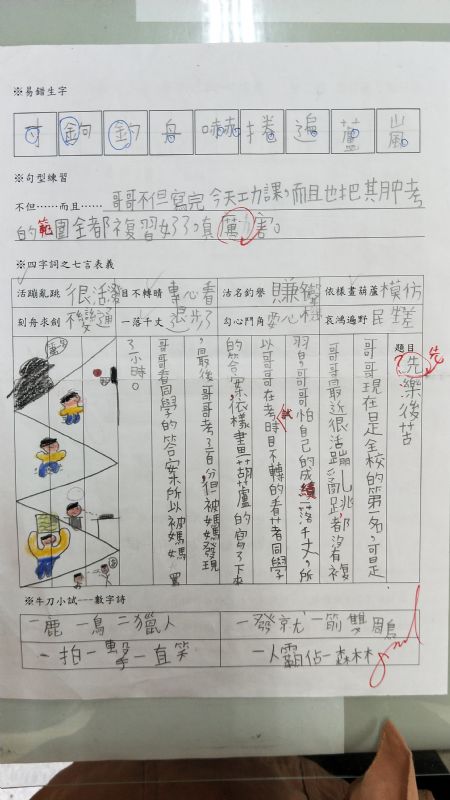 ※易錯生字
寸 鉤 釣 舟 嚇 捲 遍 蘆 嵐
※句型練習
不但……而且…… 哥哥不但寫完今天功課，而且也把其中考
的範圍全都複習好了，真厲害。
※四字詞之七言表義
活蹦亂跳 很活潑 目不轉睛 專心看 沽名釣譽 賺名聲 依樣畫葫蘆 模仿
刻舟求劍 不變通 一落千丈 退步了 勾心鬥角 耍心機 哀鴻遍野 民生差
題目 先樂後苦
哥哥現在是全校的第一名，可是
哥哥最近很活蹦亂跳，都沒有複
習，哥哥怕自己的成績一落千丈，所
以哥哥在考試時目不轉的看著同學
的答案，依樣畫葫蘆的寫了下來
，最後哥哥考了百分，但被媽媽發現
哥哥看同學的答案所以被媽媽罵
了小時。
※牛刀小試---數字詩
一鹿一鳥二獵人
一發就一箭雙鵰
一拍一擊一直笑
一人霸佔一森林